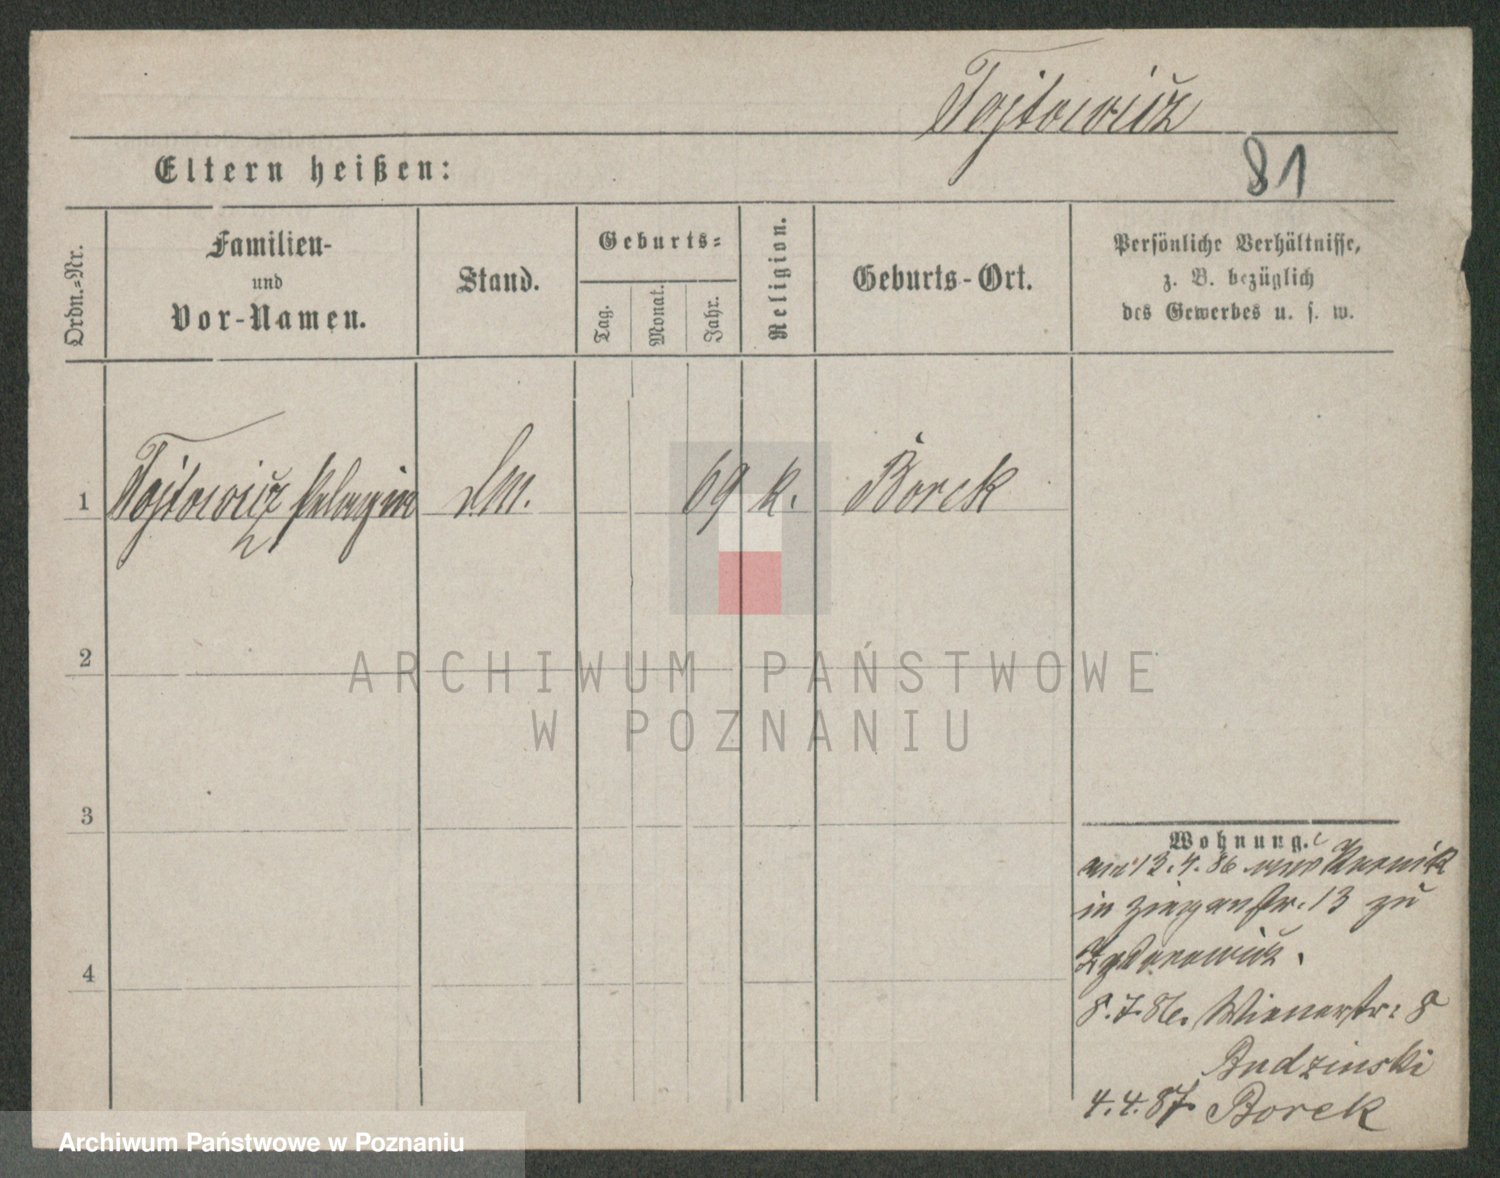 Tojtowicz
81
Eltern heißen:
Ordn.-Nr.
Familien-
und
Vor-Namen.
Stand.
Geburts-
Tag.
Monat.
Jahr.
Religion.
Geburts-Ort.
Persönliche Verhältnisse,
z. B. bezüglich
des Gewerbes u. s. w.
1 Tojtowicz Pelagia 69 k. Borek
2
3
4
Wohnung.
am 13.4.86 aus Kurnik
in Ziegenstr. 13 zu
8.7.86. Wienerstr: 8
Budzinski
4.4.87. Borek
ARCHIWUM PAŃSTWOWE
W POZNANIU
Archiwum Państwowe w Poznaniu